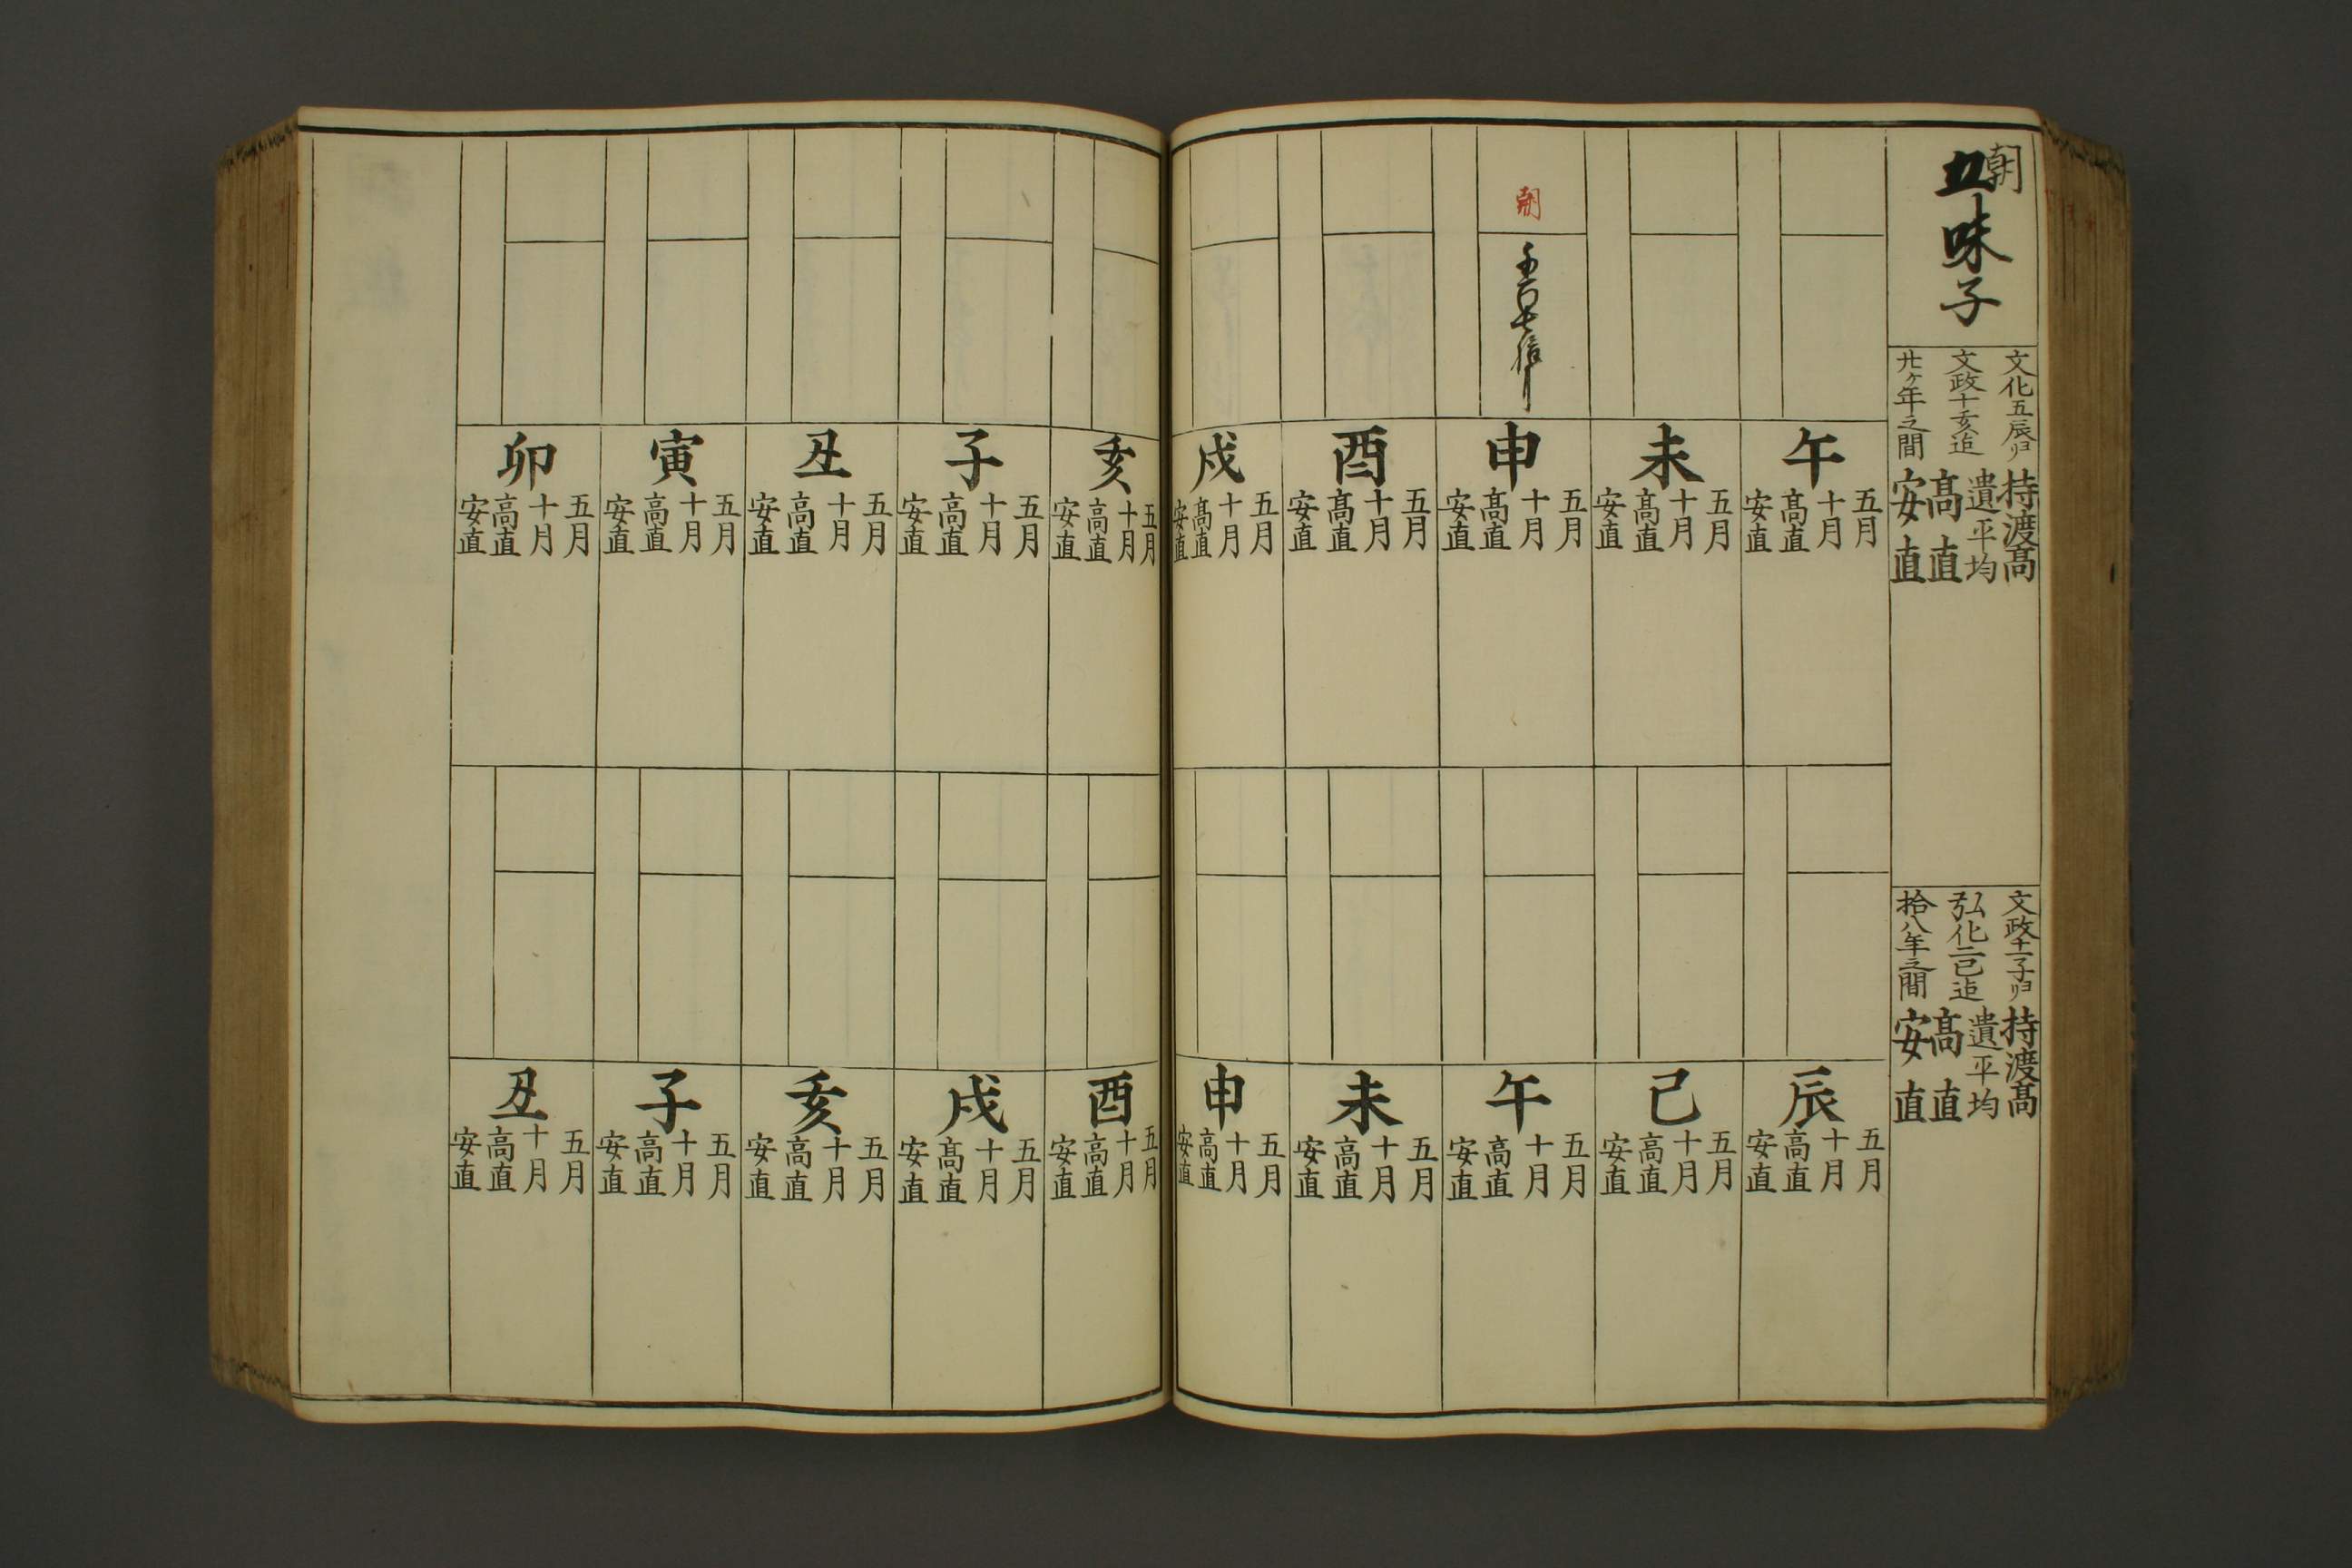 朝
五味子
文化五辰ヨリ
文政十亥迄
廿ヶ年之間
持渡髙
遺平均
髙直
安直
文政十一子ヨリ
弘化二巳迄
拾八年之間
持渡髙
遺平均
髙直
安直
午
五月
十月
髙直
安直
未
五月
十月
髙直
安直
朝
申
五月
十月
髙直
安直
酉
五月
十月
髙直
安直
戌
五月
十月
髙直
安直
亥
五月
十月
高直
安直
子
五月
十月
高直
安直
丑
五月
十月
高直
安直
寅
五月
十月
高直
安直
卯
五月
十月
高直
安直
辰
五月
十月
高直
安直
巳
五月
十月
高直
安直
午
五月
十月
高直
安直
未
五月
十月
高直
安直
申
五月
十月
高直
安直
酉
五月
十月
高直
安直
戌
五月
十月
髙直
安直
亥
五月
十月
高直
安直
子
五月
十月
高直
安直
丑
五月
十月
高直
安直